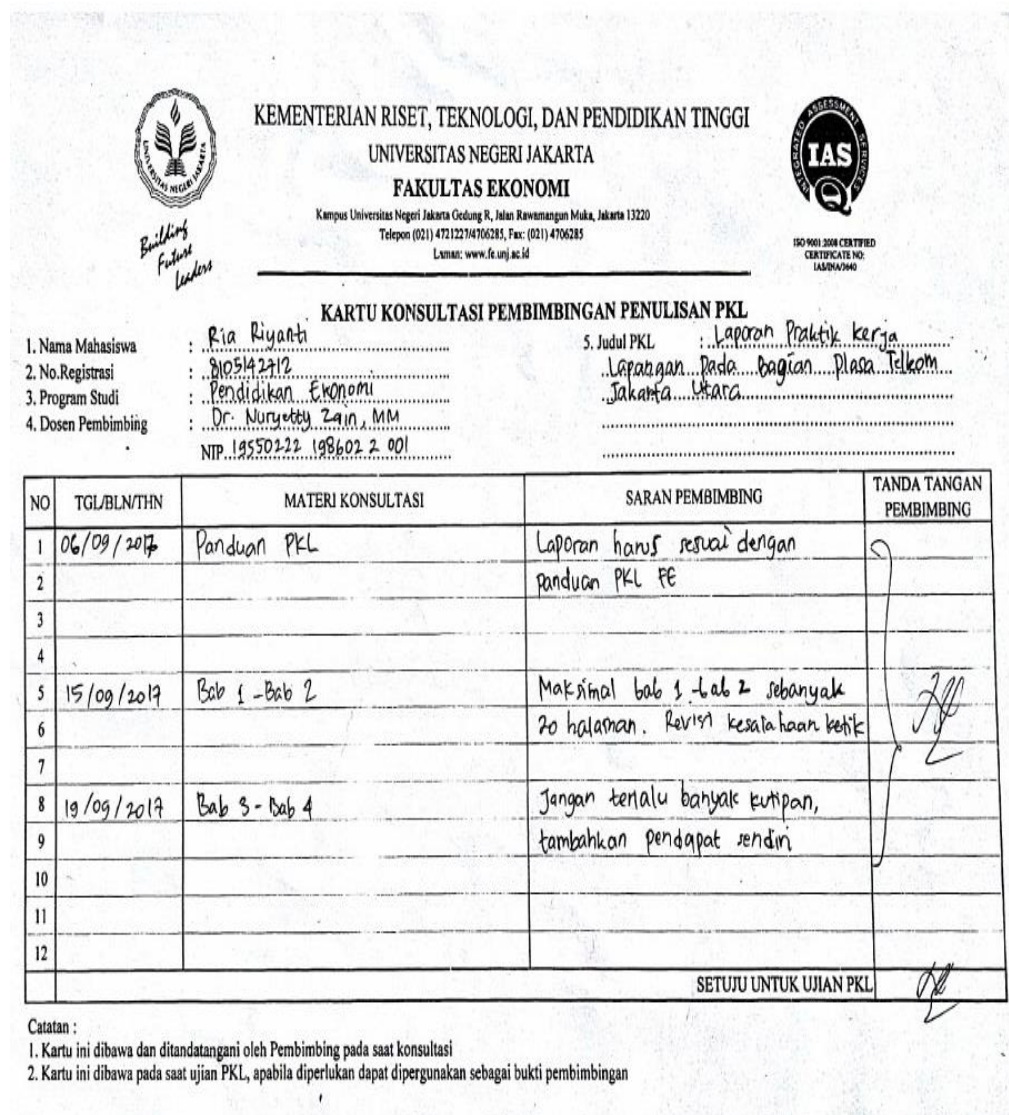 KEMENTERIAN RISET, TEKNOLOGI, DAN PENDIDIKAN TINGGI
UNIVERSITAS NEGERI JAKARTA
FAKULTAS EKONOMI
Kampus Universitas Negeri Jakarta Gedung R, Jalan Rawamangun Muka, Jakarta 13220
Telepon (021) 4721227/4706285, Fax: (021) 4706285
Laman: www.fe.unj.ac.id
UNIVERSITAS NEGERI JAKARTA
Building
Future
Leaders
INTEGRATED ASSESSMENT SERVICES
IAS
ISO 9001:2008 CERTIFIED
CERTIFICATE NO:
IAS/INA/3640
KARTU KONSULTASI PEMBIMBINGAN PENULISAN PKL
1. Nama Mahasiswa : Ria Riyanti
2. No.Registrasi : 8105142712
3. Program Studi : Pendidikan Ekonomi
4. Dosen Pembimbing : Dr. Nuryetty Zain, MM
NIP. 19550222 198602 2 001
5. Judul PKL : Laporan Praktik Kerja
Lapangan Pada Bagian Plasa Telkom
Jakarta Utara
NO TGL/BLN/THN MATERI KONSULTASI SARAN PEMBIMBING TANDA TANGAN PEMBIMBING
1 06/09/2017 Panduan PKL Laporan harus sesuai dengan
2 panduan PKL FE
3
4
5 15/09/2017 Bab 1 - Bab 2 Maksimal bab 1 - bab 2 sebanyak
6 20 halaman. Revisi kesalahaan ketik
7
8 19/09/2017 Bab 3 - Bab 4 Jangan terlalu banyak kutipan,
9 tambahkan pendapat sendiri
10
11
12
SETUJU UNTUK UJIAN PKL
Catatan :
1. Kartu ini dibawa dan ditandatangani oleh Pembimbing pada saat konsultasi
2. Kartu ini dibawa pada saat ujian PKL, apabila diperlukan dapat dipergunakan sebagai bukti pembimbingan